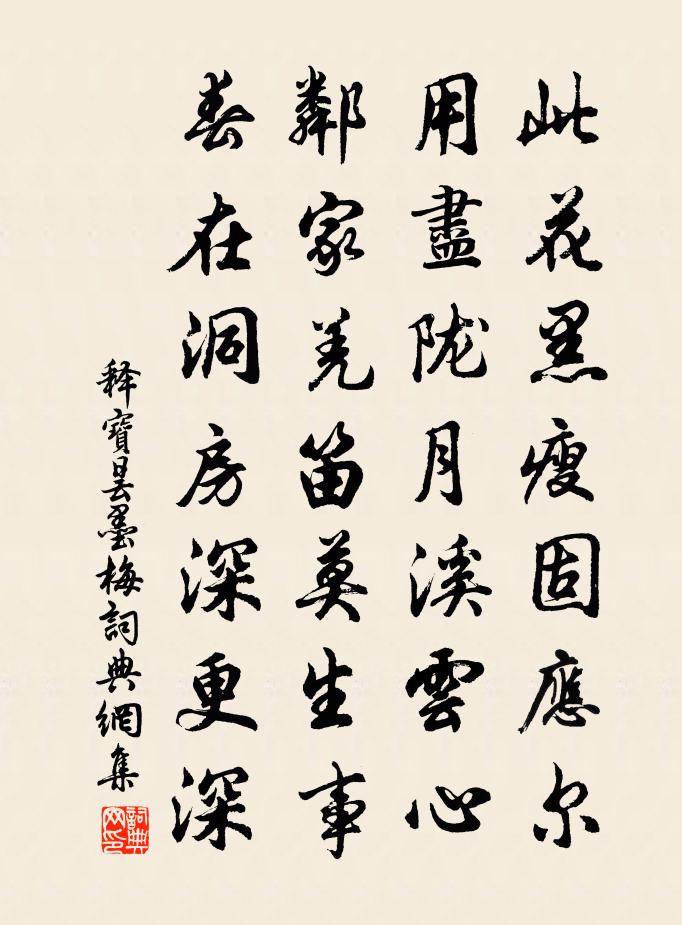 此花黑瘦固應尔
用盡陇月溪雲心
鄰家羌笛莫生事
春在洞房深更深
释寶曇墨梅詞典網集
詞典网印